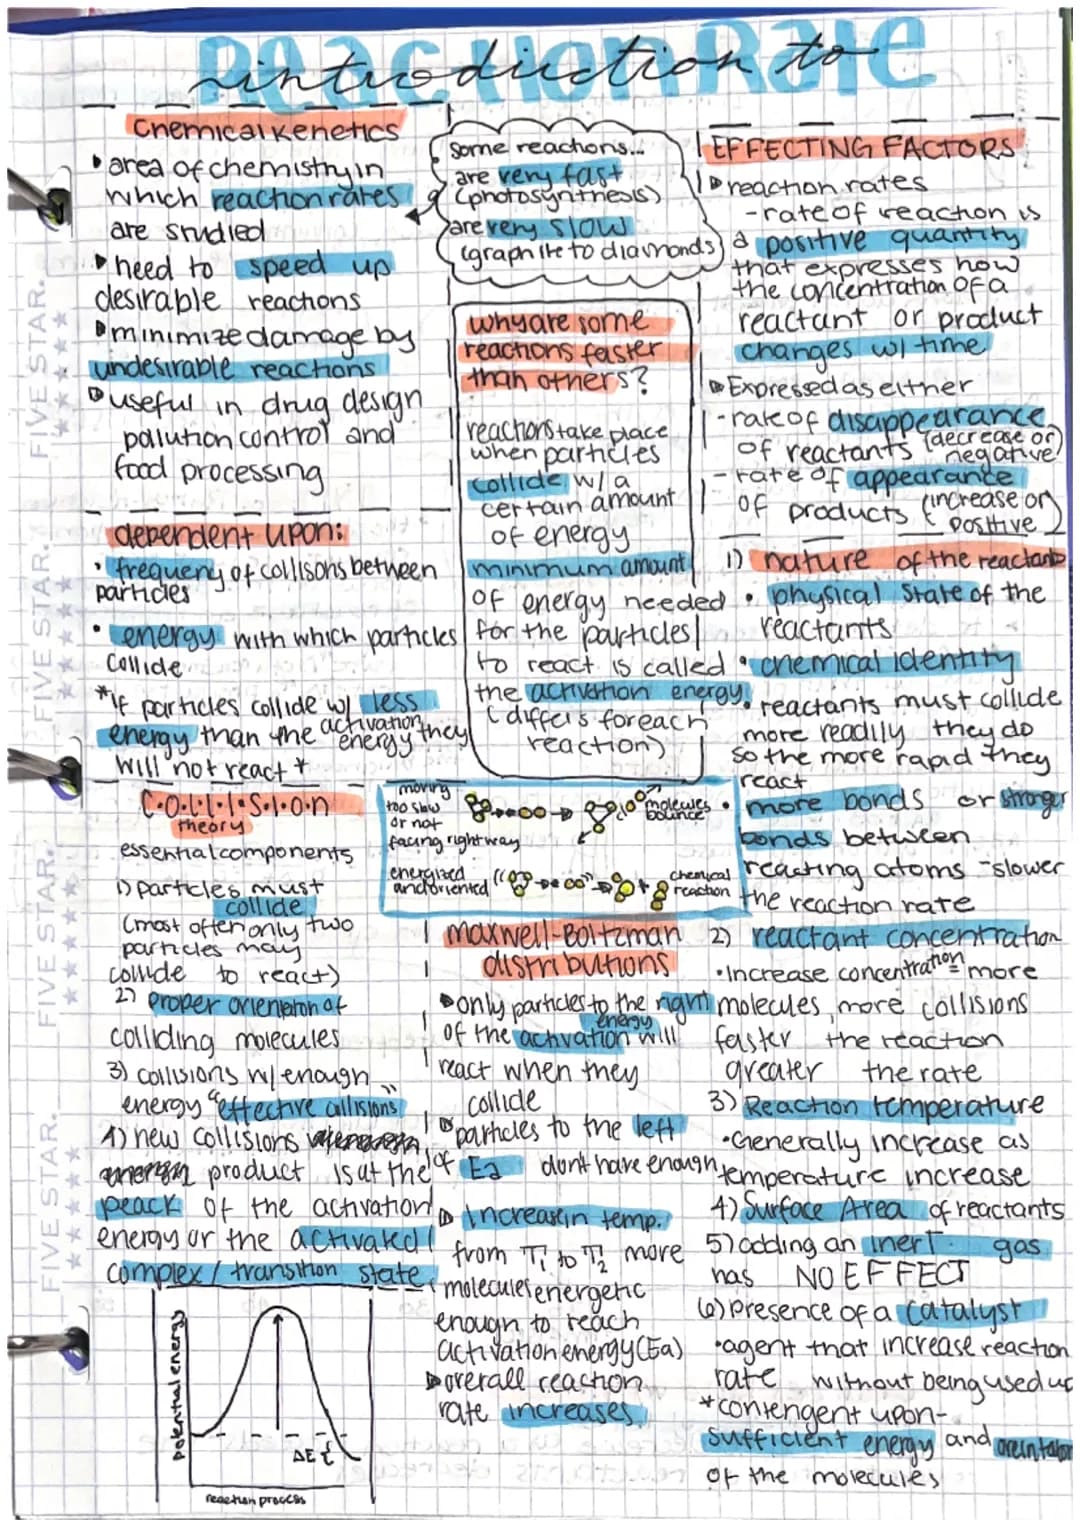 Reaction Rate
introduction to
Chemical Kenetics
area of chemistry in
which reaction rates
are studied
need to speed up
desirable reactions
minimize damage by
undesirable reactions
useful in drug design
pollution control and
food processing
some reactions...
are very fast
(photosynthesis)
are very slow
(graphite to diamonds)
why are some
reactions faster
than others?
reactions take place
when particles
collide w/ a
certain amount
of energy
minimum amount
of energy needed
for the particles
to react is called
the activation energy
(differs for each
reaction)
EFFECTING FACTORS
reaction rates
-rate of reaction is
a positive quantity
that expresses how
the concentration of a
reactant or product
changes w/ time
Expressed as either
-rate of disappearance
of reactants (decrease or
negative)
-rate of appearance
of products (increase or
positive)
dependent upon:
• frequeny of collisons between
particles
• energy with which particles
collide
*If particles collide w/ less
energy than the activation
energy they
will not react*
C•O•L•L•I•S•I•O•N
theory
essential components
1) particles must
collide
(most often only two
particles may
collide to react)
2) proper orientation of
colliding molecules
3) collisions w/ enough
energy "effective collisions"
4) new collisions
product is at the
peack of the activation
energy or the activated
complex / transition state
potential energy
ΔE {
reaction process
moving
too slow
or not
facing right way
molecules
bounce
energized
and oriented
chemical
reaction
maxwell-Boltzman
distributions
only particles to the right
of the activation energy will
react when they
collide
particles to the left
of Ea dont have enough
increase in temp.
from T1 to T2 more
molecules energetic
enough to reach
activation energy (Ea)
overall reaction
rate increases
1) nature of the reactants
• physical state of the
reactants
• chemical identity
• reactants must collide
more readily they do
so the more rapid they
react
• more bonds or stronger
bonds between
reacting atoms - slower
the reaction rate
2) reactant concentration
•Increase concentration = more
molecules, more collisions
faster the reaction
greater the rate
3) Reaction temperature
•Generally increase as
temperature increase
4) Surface Area of reactants
5) adding an inert gas
has NO EFFECT
6) presence of a catalyst
•agent that increase reaction
rate without being used up
*contengent upon-
sufficient energy and
of the molecules
FIVE STAR.
FIVE STAR.
FIVE STAR.
FIVE STAR.